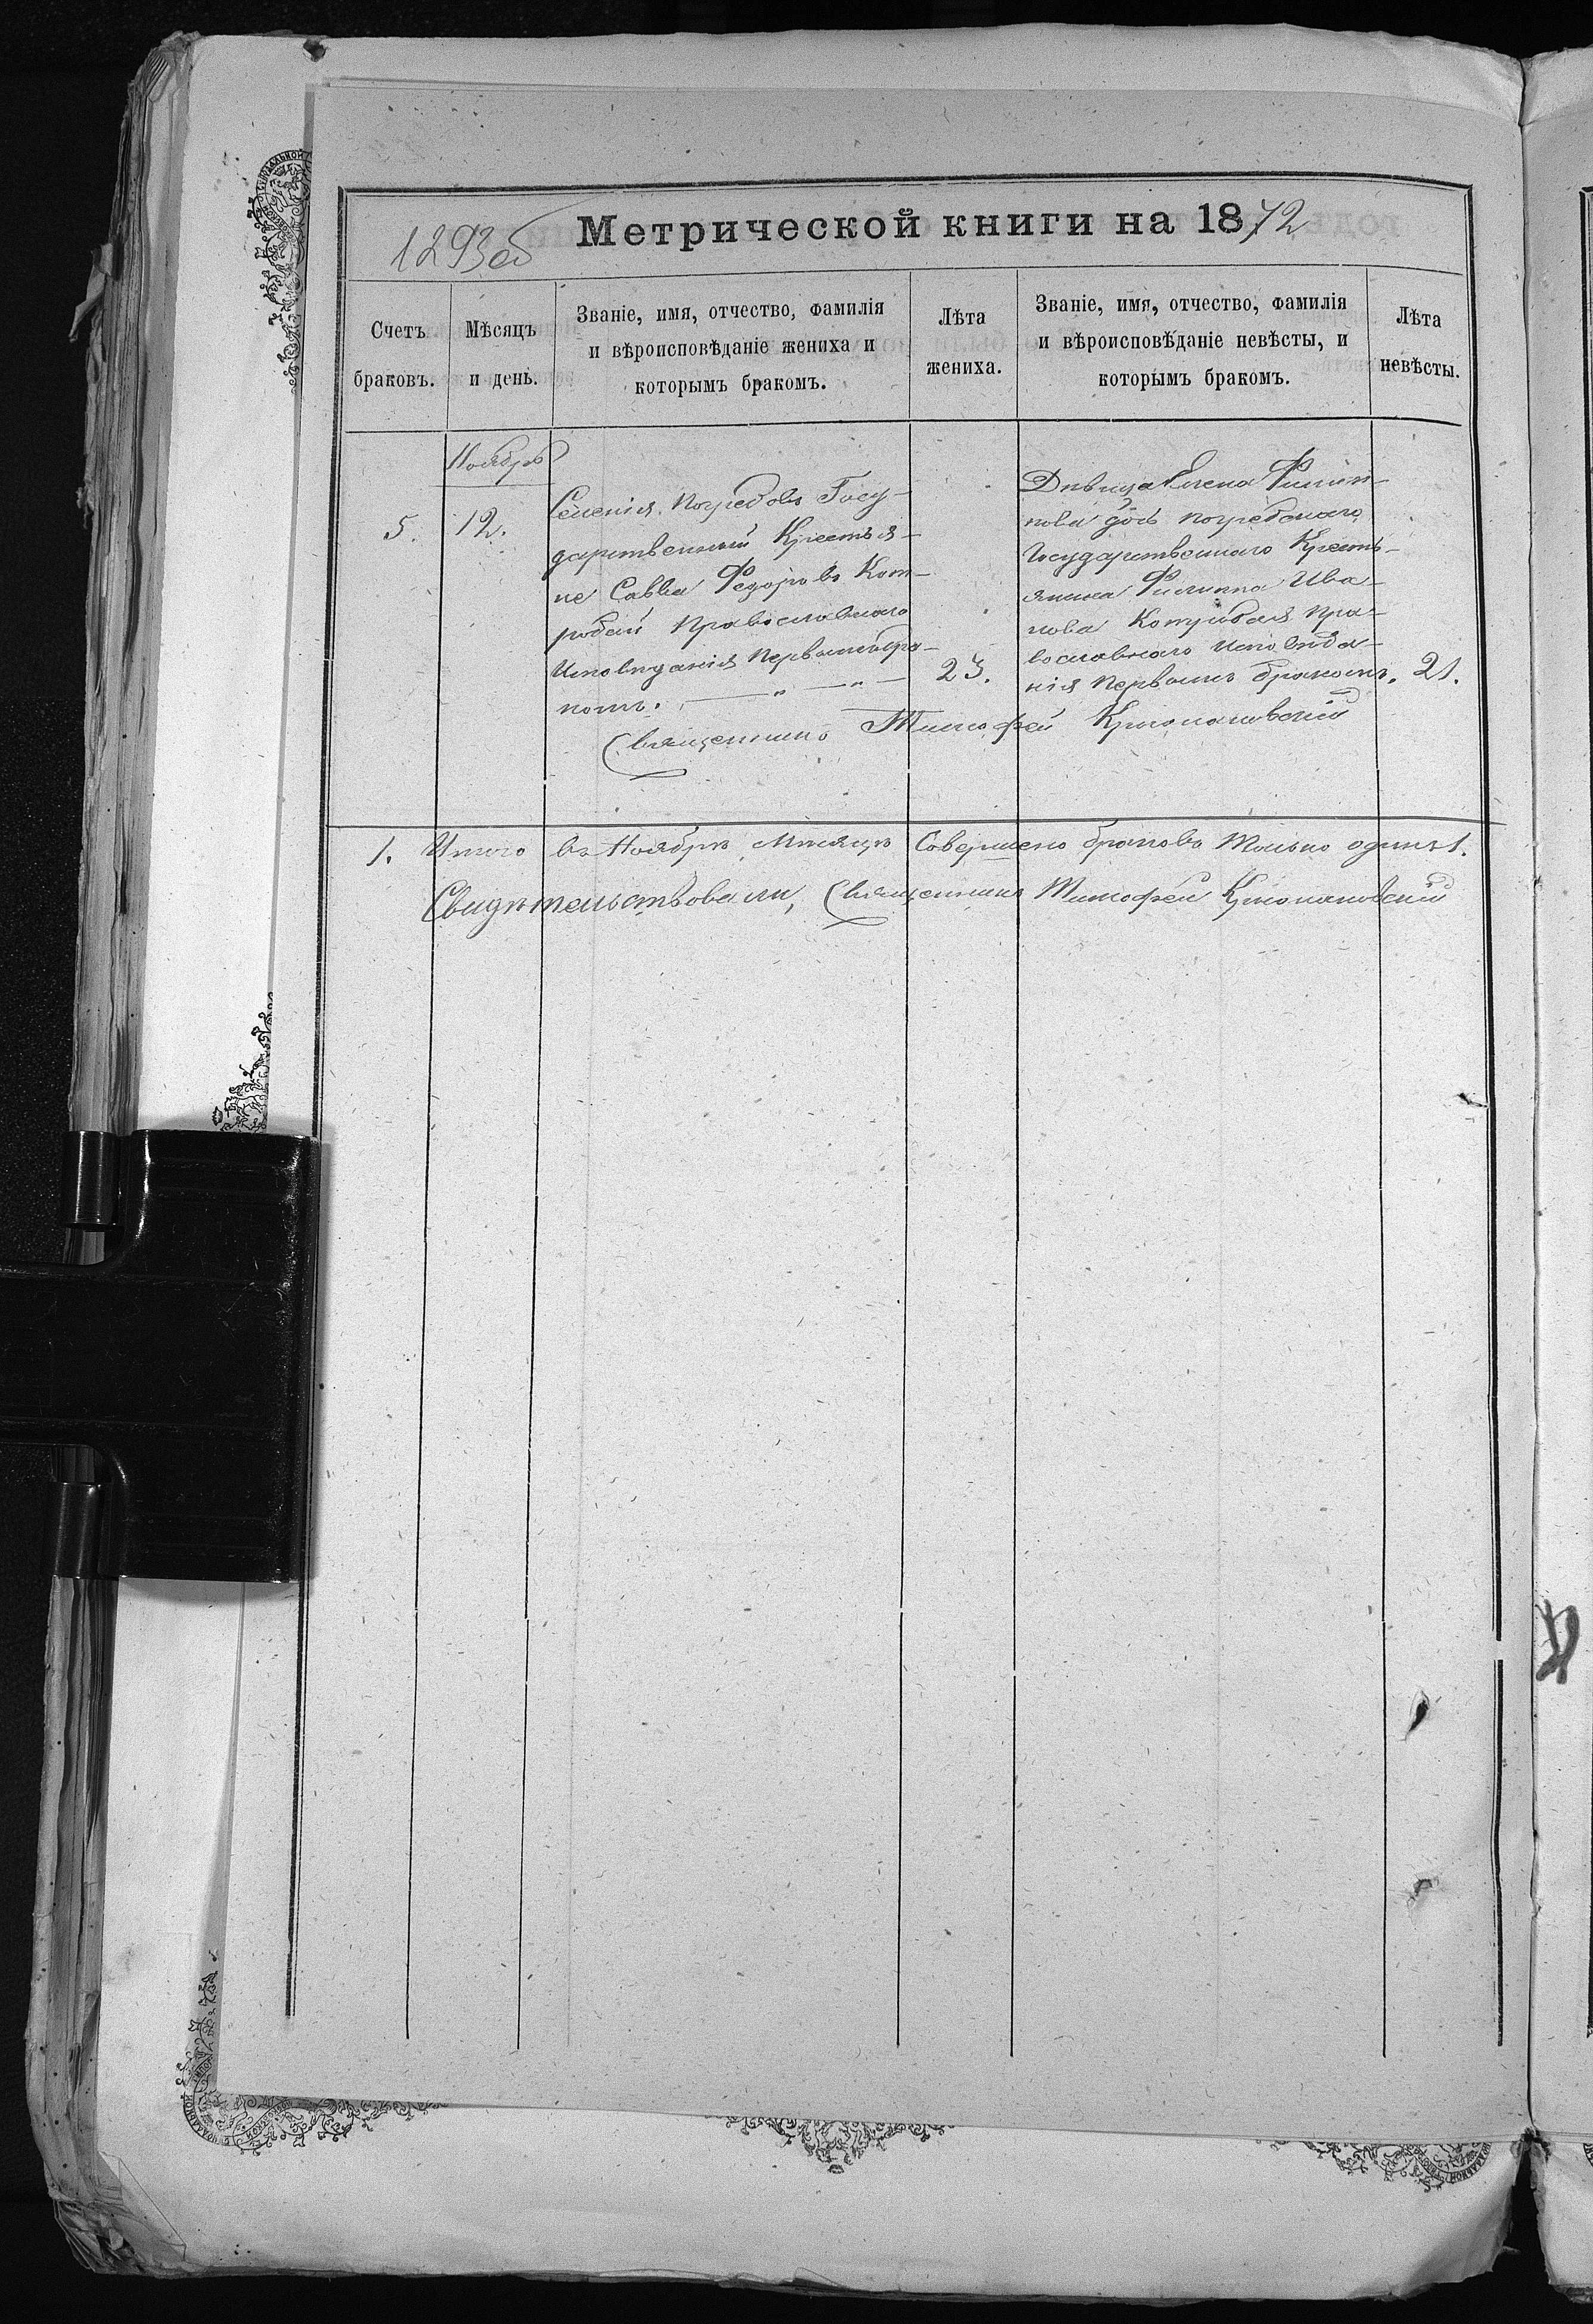 1293об
Метрической книги на 1872
Счетъ браковъ.
Мѣсяцъ и день.
Званіе, имя, отчество, фамилія и вѣроисповѣданіе жениха и которымъ бракомъ.
Лѣта жениха.
Званіе, имя, отчество, фамилія и вѣроисповѣданіе невѣсты, и которымъ бракомъ.
Лѣта невѣсты.
Ноябрь
5.
12.
Селенія Погребовъ Госу-
дарственный Крестья-
не Савва Федоровъ Кот-
робай Православнаго
Исповѣданія Первымъ бра-
комъ.
23.
Дѣвица Елена Филип-
пова дочь погребскаго
Государственнаго Кресть-
янина Филиппа Ива-
нова Котробая Пра-
вославнаго Исповѣда-
нія Первымъ бракомъ.
21.
Священникъ Тимофей
1. Итого въ Ноябрѣ Мѣсяцѣ Совершено браковъ Только одинъ 1.
Свидѣтельствовали, Священникъ Тимофей